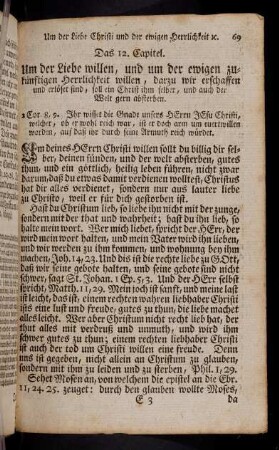 Um der Liebe Christi und der ewigen Herrlichkeit ꝛc. 69
Das 12. Capitel.
Um der Liebe willen, und um der ewigen zu-
künfftigen Herrlichkeit willen, darzu wir erschaffen
und erlöset sind, soll ein Christ ihm selber, und auch der
Welt gern absterben.
2 Cor. 8, 9. Ihr wisset die Gnade unsers HErrn JEsu Christi,
welcher, ob er wohl reich war, ist er doch arm um euertwillen
worden, auf daß ihr durch seine Armuth reich würdet.
Um deines HErrn Christi willen solt du billig dir sel-
ber, deinen sünden, und der welt absterben, gutes
thun, und ein göttlich, heilig leben führen, nicht zwar
darum, daß du etwas damit verdienen wolltest, Christus
hat dir alles verdienet, sondern nur aus lauter liebe
zu Christo, weil er für dich gestorben ist.
Hast du Christum lieb, so liebe ihn nicht mit der zunge,
sondern mit der that und wahrheit; hast du ihn lieb, so
halte mein wort. Wer mich liebet, spricht der HErr, der
wird mein wort halten, und mein Vater wird ihn lieben,
und wir werden zu ihm kommen, und wohnung bey ihm
machen, Joh. 14, 23. Und dis ist die rechte liebe zu GOtt,
daß wir seine gebote halten, und seine gebot sind nicht
schwer, sagt St. Johan. 1 Ep. 5, 3. Und der HErr selbst
spricht, Matth. 11, 29. Mein joch ist sanft, und meine last
ist leicht, das ist, einem rechten wahren liebhaber Christi
ists eine lust und freude, gutes zu thun, die liebe machet
alles leicht. Wer aber Christum nicht recht lieb hat, der
thut alles mit verdruß und unmuth, und wird ihm
schwer gutes zu thun; einem rechten liebhaber Christi
ist auch der tod um Christi willen eine freude. Denn
uns ist gegeben, nicht allein an Christum zu glauben,
sondern mit ihm zu leiden und zu sterben, Phil. 1, 29.
Sehet Mosen an, von welchem die epistel an die Ebr.
11, 24. 25. zeuget: durch den glauben wollte Moses,
E 3 da